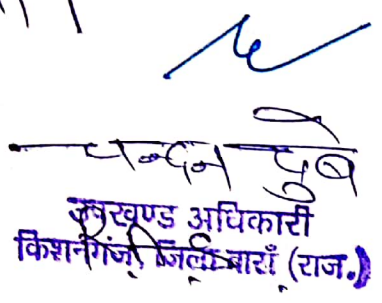 चन्दन दुबे
उपखण्ड अधिकारी
किशनगंज, जिला-बारां (राज.)